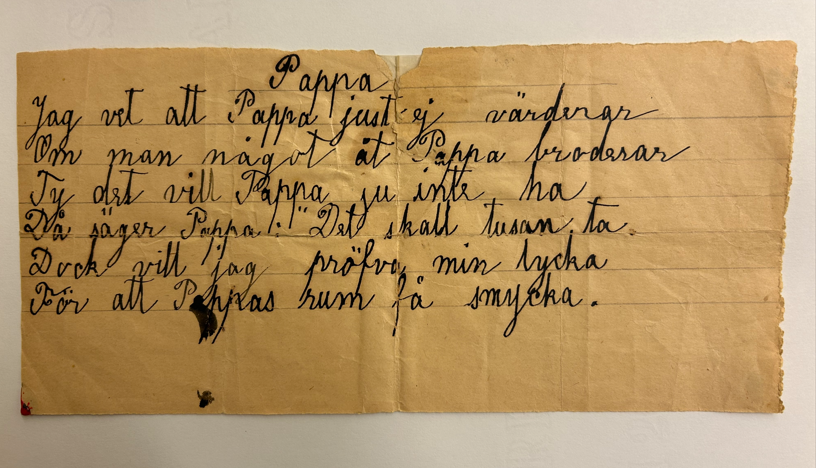 Pappa
Jag vet att Pappa just ej värderar
Om man något åt Pappa broderar
Ty det vill Pappa ju inte ha
Då säger Pappa: "Det skall tusan ta.
Dock vill jag pröfva min lycka
För att Pappas rum få smycka.